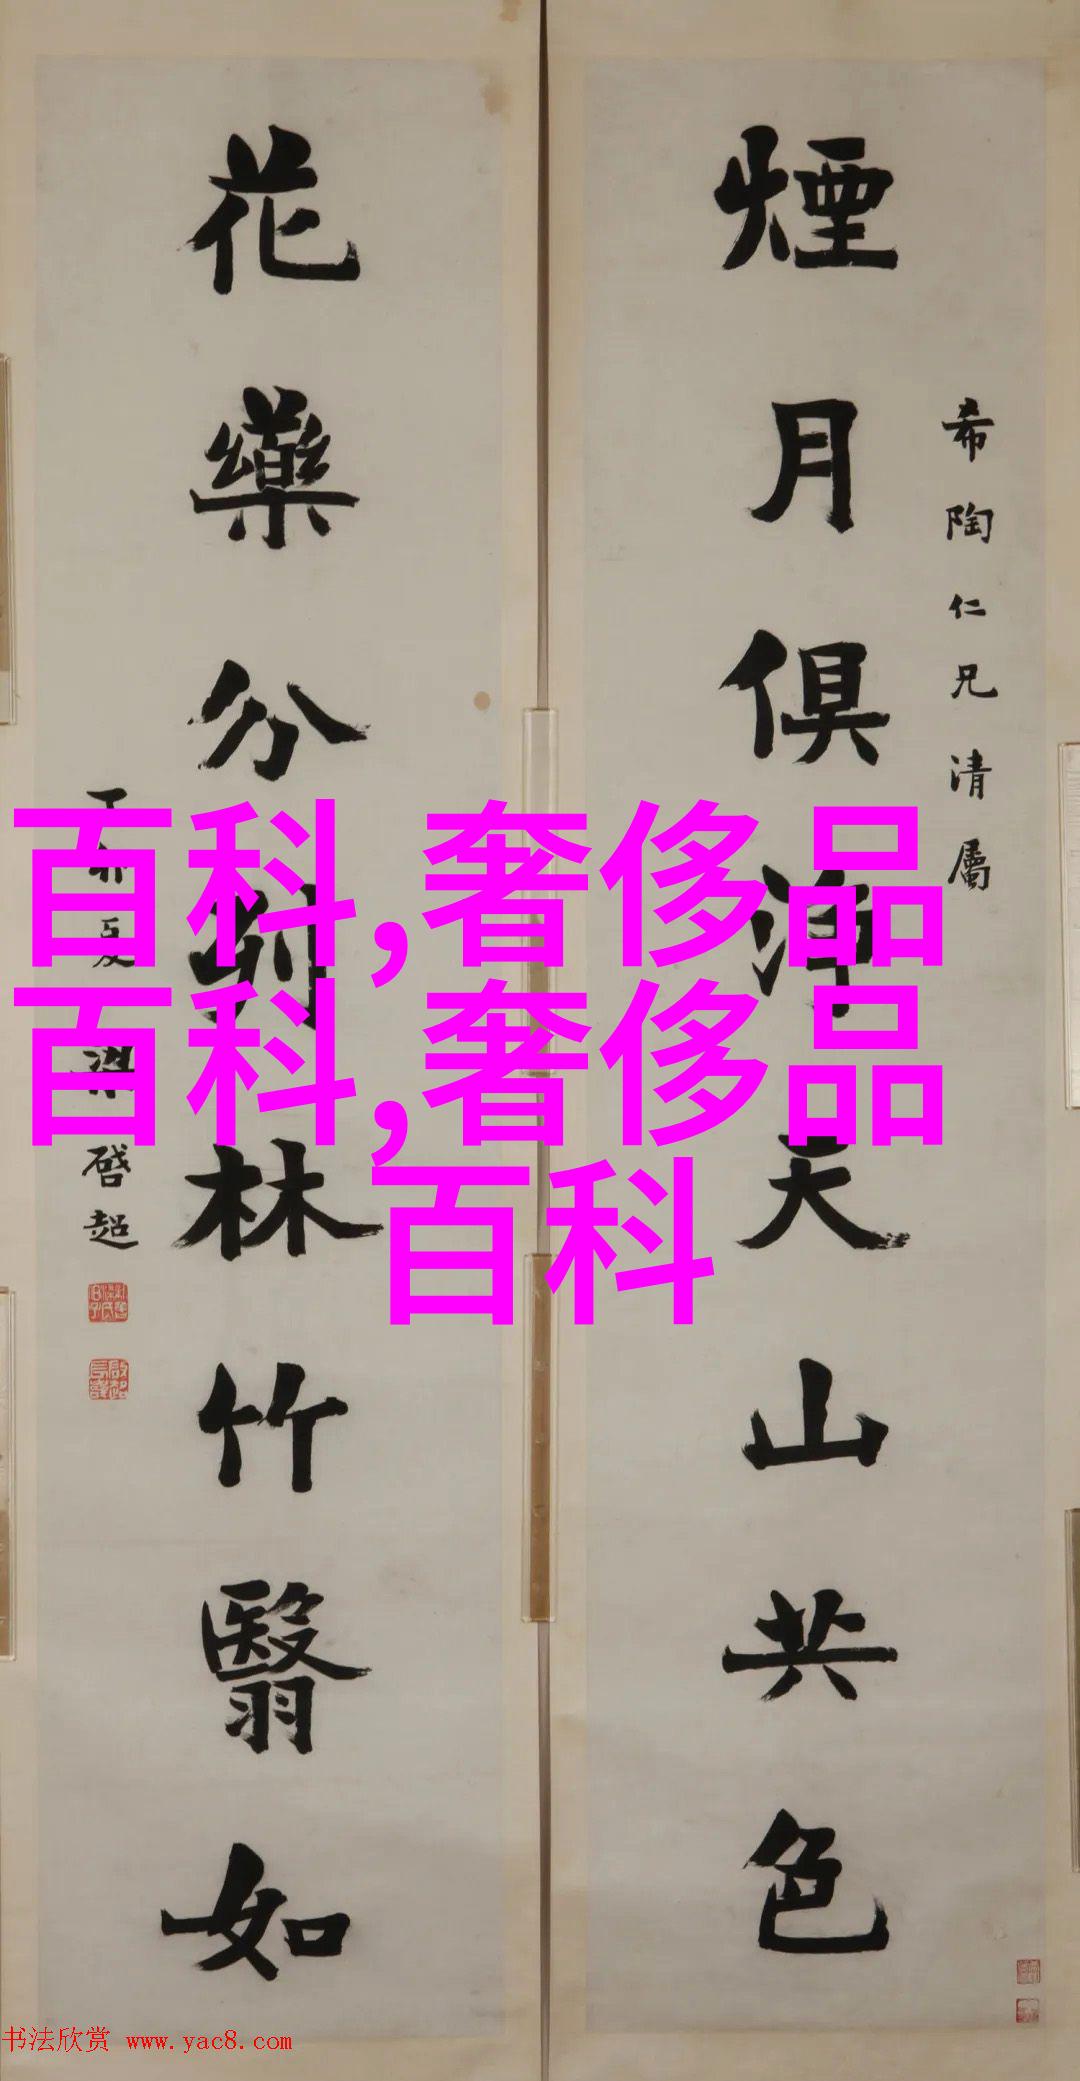 希陶仁兄清屬
煙月俱淨天山共色
花藥分列林竹翳如
丁卯夏梁啓超
百科,奢侈品
百科,奢侈品
百科
书法欣赏 www.yac8.com